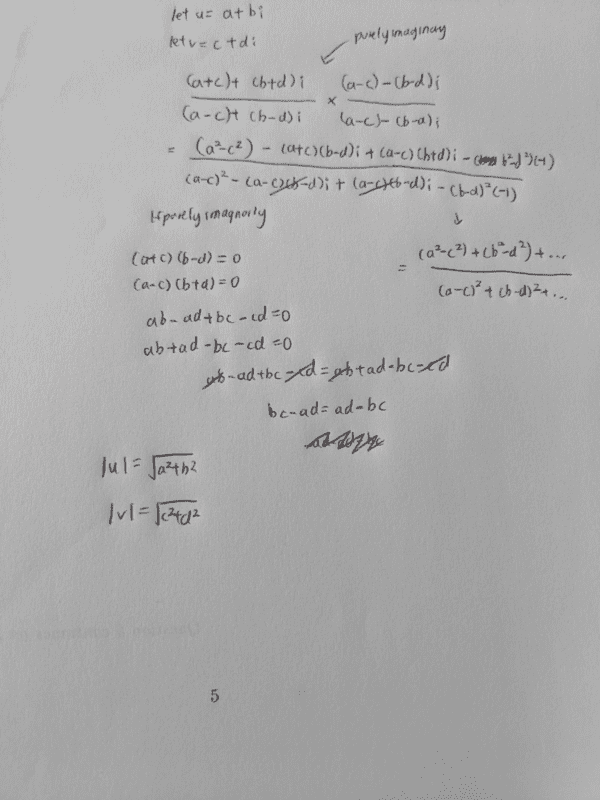 let u= a+bi
let v= c+di
purely imaginary
(a+c)+ (b+d)i / (a-c)+ (b-d)i × (a-c)-(b-d)i / (a-c)-(b-d)i
= (a²-c²) - (a+c)(b-d)i + (a-c)(b+d)i - (b²-d²)(-1) / (a-c)² - (a-c)(b-d)i + (a-c)(b-d)i - (b-d)²(-1)
If purely imaginary
= (a²-c²)+(b²-d²)+... / (a-c)²+(b-d)²+...
(a+c)(b-d)=0
(a-c)(b+d)=0
ab-ad+bc-cd=0
ab+ad-bc-cd=0
ab-ad+bc-cd=ab+ad-bc-cd
bc-ad=ad-bc
|u|=√a²+b²
|v|=√c²+d²
5